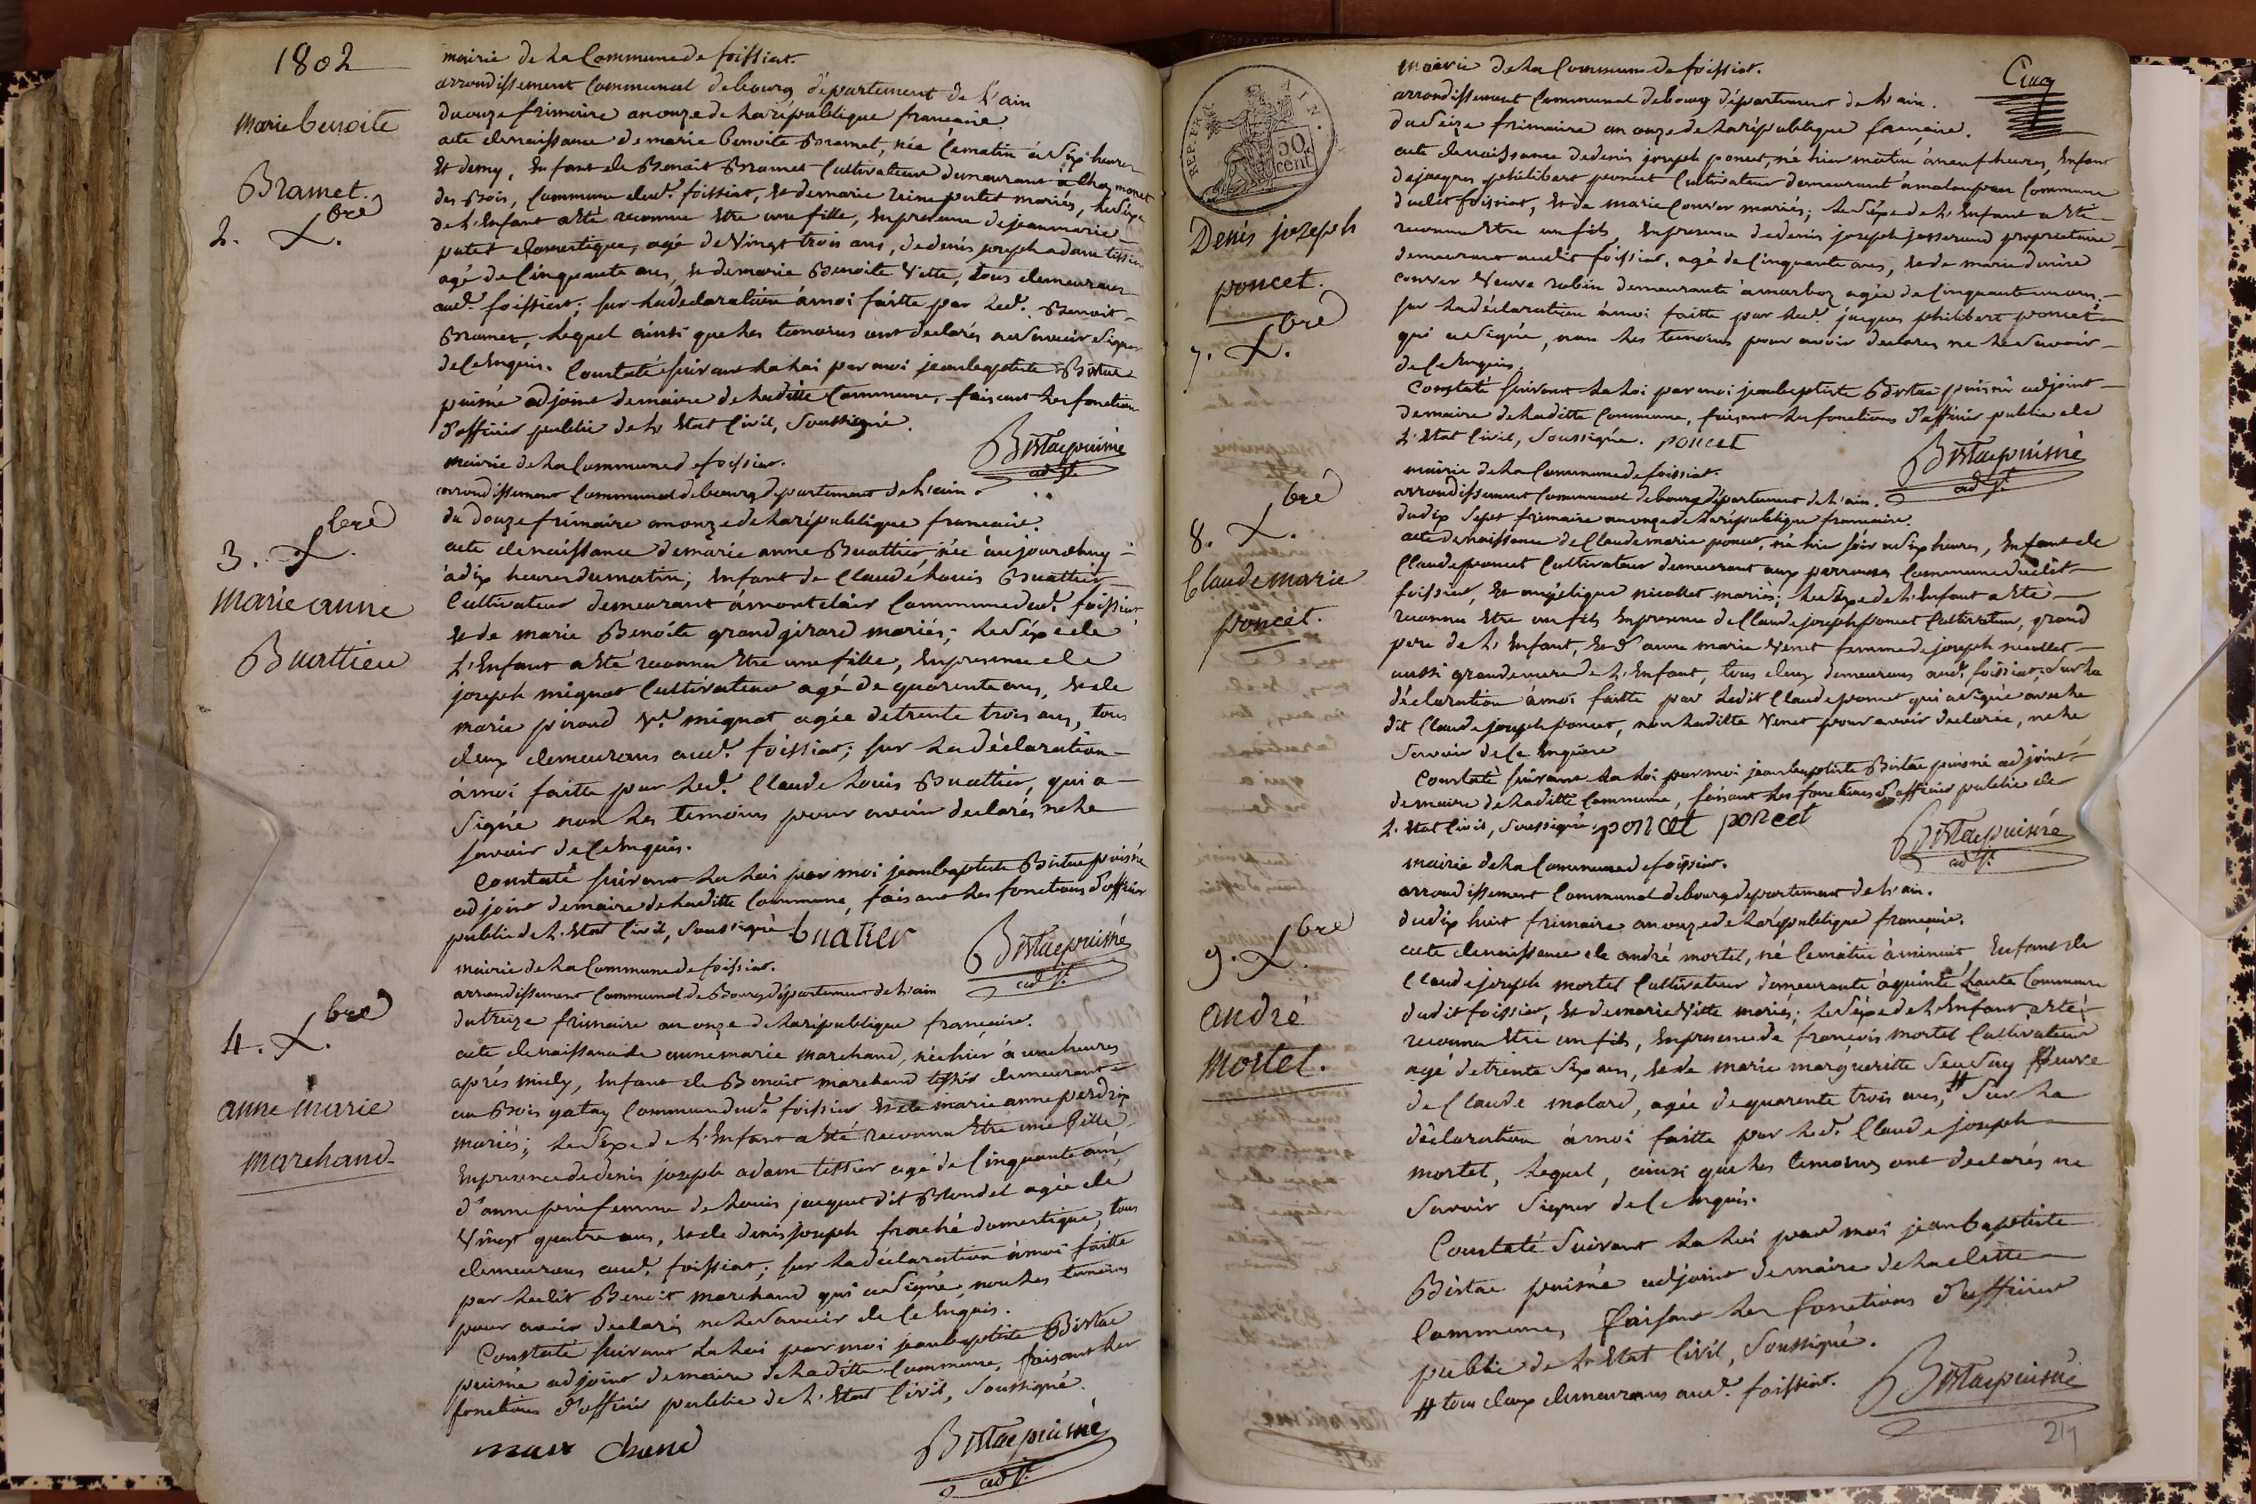 1802
marie benoite
Bramet.
2. Xbre
mairie de La Commune de foissiat.
arrondissement Communal de bourg département de L'ain
du onze frimaire an onze de La république francaise.
acte de naissance de marie benoite Bramet, née Cematin à Six heures
Et demy, Enfant de Benoit Bramet Cultivateur demeurant à Chez monet
des Bois, Commune dud. foissiat, Et de marie reine putet mariés, Le Séxe
de L'Enfant a Eté reconnu Etre une fille, En presence de jean marie
putet domestique, agé de Vingt trois ans, de denis joseph adam tissier
agé de Cinquante ans, et de marie Benoite Vitte, tous demeurans
aud. foissiat; sur La declaration à moi faitte par Led. Benoit
Bramet, Lequel ainsi que Les temoins ont declarés ne Savoir Signer
de Ce Enquis. Constaté suivant La Loi par moi jean baptiste Bistac
puisné adjoint de maire de Laditte Commune, faisant Les fonctions
d'officier public de L'Etat Civil, Soussigné.
Bistac puisné
adjt.
3. Xbre
marie anne
Buattier
mairie de La Commune de foissiat.
arrondissement Communal de bourg département de L'ain.
du douze frimaire an onze de La république francaise.
acte de naissance de marie anne Buattier née aujourdhuy
à dix heures du matin; Enfant de Claude Louis Buattier
Cultivateur demeurant à montclair Commune dud. foissiat
Et de marie Benoite grand girard mariés; Le Séxe de
L'Enfant a Eté reconnu Etre une fille, En presence de
joseph mignot Cultivateur agé de quarente ans, Et de
marie piroud Ve. mignot agée de trente trois ans, tous
deux demeurans aud. foissiat; sur La déclaration
à moi faitte par Led. Claude Louis Buattier, qui a
Signé non Les temoins pour avoir declarés ne Le
savoir de Ce Enquis.
Constaté suivant La Loi par moi jean baptiste Bistac puisné
adjoint de maire de Laditte Commune, faisant Les fonctions d'officier
public de L'Etat Civil, Soussigné buatier
Bistac puisné
adjt.
4. Xbre
anne marie
marchand
mairie de La Commune de foissiat.
arrondissement Communal de Bourg département de L'ain
du treize frimaire an onze de La république francaise.
acte de naissance de anne marie marchand, née hier à une heures
après midy, Enfant de Benoit marchand tissier demeurant
au Bois gatay Commune dud. foissiat Et de marie anne perdrix
mariés; Le Séxe de L'Enfant a Eté reconnu Etre une fille
En presence de denis joseph adam tissier agé de Cinquante ans,
d'anne femme de Louis jacquet dit Blondel agée de
Vingt quatre ans, Et de denis joseph domestique, tous
demeurans aud. foissiat; sur La déclaration à moi faitte
par Ledit Benoit marchand qui a Signé, non Les temoins
pour avoir declarés ne Le Savoir de Ce Enquis.
Constaté suivant La Loi par moi jean baptiste Bistac
puisné adjoint de maire de Laditte Commune, faisant Les
fonctions d'officier public de L'Etat Civil, Soussigné.
mar chand
Bistac puisné
adjt.
REP. FRA.
AIN.
50 cent
Cinq
Denis joseph
poncet.
7. Xbre
mairie de La Commune de foissiat.
arrondissement Communal de bourg département de L'ain.
du Seize frimaire an onze de La république francaise.
acte de naissance de denis joseph poncet, né hier matin à neuf heures, Enfant
de jacques philibert poncet Cultivateur demeurant à Commune
dudit foissiat, Et de marie Convert mariés; Le Séxe de L'Enfant a Eté
reconnu Etre un fils, En presence de denis joseph josserand proprietaire
demeurant audit foissiat, agé de Cinquante ans, Et de marie
Veuve robin demeurante à marboz agée de Cinquante un ans,
sur La déclaration à moi faitte par Led. jacques philibert poncet
qui a Signé, non Les temoins pour avoir declarés ne Le Savoir
de Ce Enquis.
Constaté suivant La Loi par moi jean baptiste Bistac puisné adjoint
de maire de Laditte Commune, faisant Les fonctions d'officier public de
L'Etat Civil, Soussigné. poncet
Bistac puisné
adjt.
8. Xbre
Claude marie
poncet.
mairie de La Commune de foissiat.
arrondissement Communal de bourg département de L'ain.
du dix Sept frimaire an onze de La république francaise.
acte de naissance de Claude marie poncet, né hier Soir a Six heures, Enfant de
Claude poncet Cultivateur demeurant aux Commune dudit
foissiat, Et angélique nicollet mariés; Le Séxe de L'Enfant a Eté
reconnu Etre un fils En presence de Claude joseph poncet Cultivateur, grand
pere de L'Enfant, Et d'anne marie Venet femme de joseph nicollet
aussi grande mere de L'Enfant, tous deux demeurans aud. foissiat, Sur La
déclaration à moi faitte par Ledit Claude poncet qui a Signé avec Le
dit Claude joseph poncet, non Laditte Venet pour avoir declarée, ne Le
Savoir de Ce Enquise
Constaté suivant La Loi par moi jean baptiste Bistac puisné adjoint
de maire de Laditte Commune, faisant Les fonctions d'officier public de
L'Etat Civil, Soussigné. poncet poncet
Bistac puisné
adjt.
9. Xbre
andré
mortel.
mairie de La Commune de foissiat.
arrondissement Communal de bourg département de L'ain.
du dix huit frimaire an onze de La république francaise.
acte de naissance de andré mortel, né Cematin à minuit, Enfant de
Claude joseph mortel Cultivateur demeurante à haute Commune
dudit foissiat, Et de marie Vitte mariés; Le Séxe de L'Enfant a Eté
reconnu Etre un fils, En presence de françois mortel Cultivateur
agé de trente Six ans, Et de marie marguéritte Veuve
de Claude molard, agée de quarente trois ans, # Sur La
déclaration à moi faitte par Led. Claude joseph
mortel, Lequel, ainsi que Les temoins ont declarés ne
Savoir Signer de Ce Enquis.
Constaté Suivant La Loi par moi jean baptiste
Bistac puisné adjoint de maire de Laditte
Commune, faisant Les fonctions d'officier
public de L'Etat Civil, Soussigné.
# tous deux demeurans aud. foissiat.
Bistac puisné